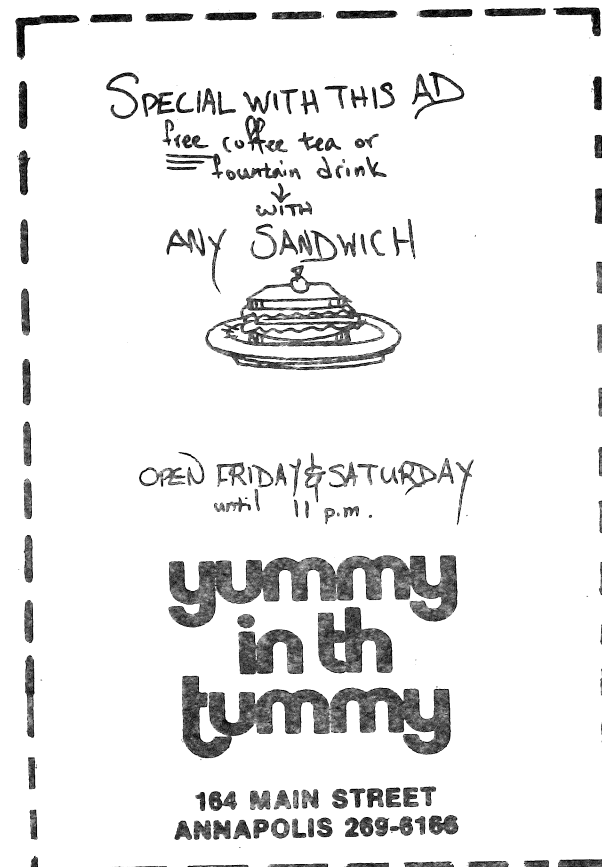 SPECIAL WITH THIS AD
free coffee tea or
fountain drink
WITH
ANY SANDWICH
OPEN FRIDAY & SATURDAY
until 11 p.m.
yummy
in th
tummy
164 MAIN STREET
ANNAPOLIS 269-6166